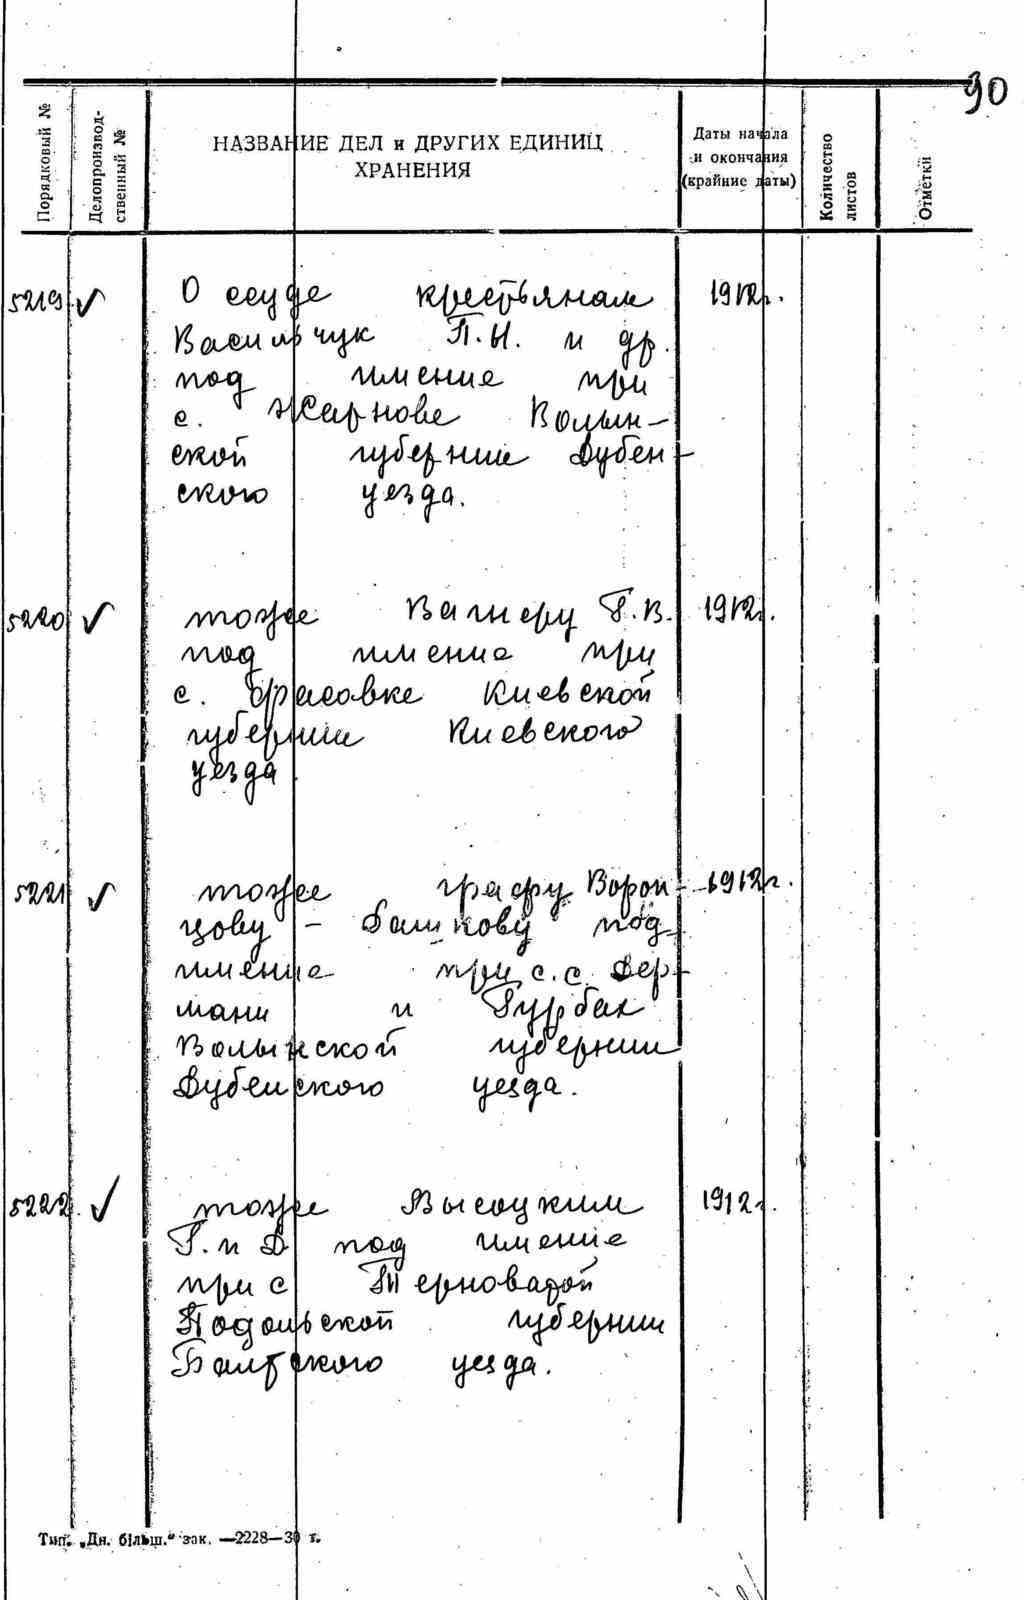 90
Порядковый №
Делопроизвод-
ственный №
НАЗВАНИЕ ДЕЛ и ДРУГИХ ЕДИНИЦ
ХРАНЕНИЯ
Даты начала
и окончания
(крайние даты)
Количество
листов
Отметки
5219 ✓ О ссуде крестьянам 1912г.
Васильчук П.Н. и др.
под имение при
с. Жарнове Волын-
ской губернии Дубен-
ского уезда.
5220 ✓ тоже Вагнеру Г.В. 1912г.
под имение при
с. Юрасовке Киевской
губернии Киевского
уезда
5221 ✓ тоже графу Ворон- 1912г.
цову - Дашкову под
имение при с.с. Дер-
мани и Гурбах
Волынской губернии
Дубенского уезда.
5222 ✓ тоже Высоцким 1912г.
Г. и Д под имение
при с Терноватой
Подольской губернии
Балтского уезда.
Тип. „Дн. більш.“ зак. —2228—30 г.